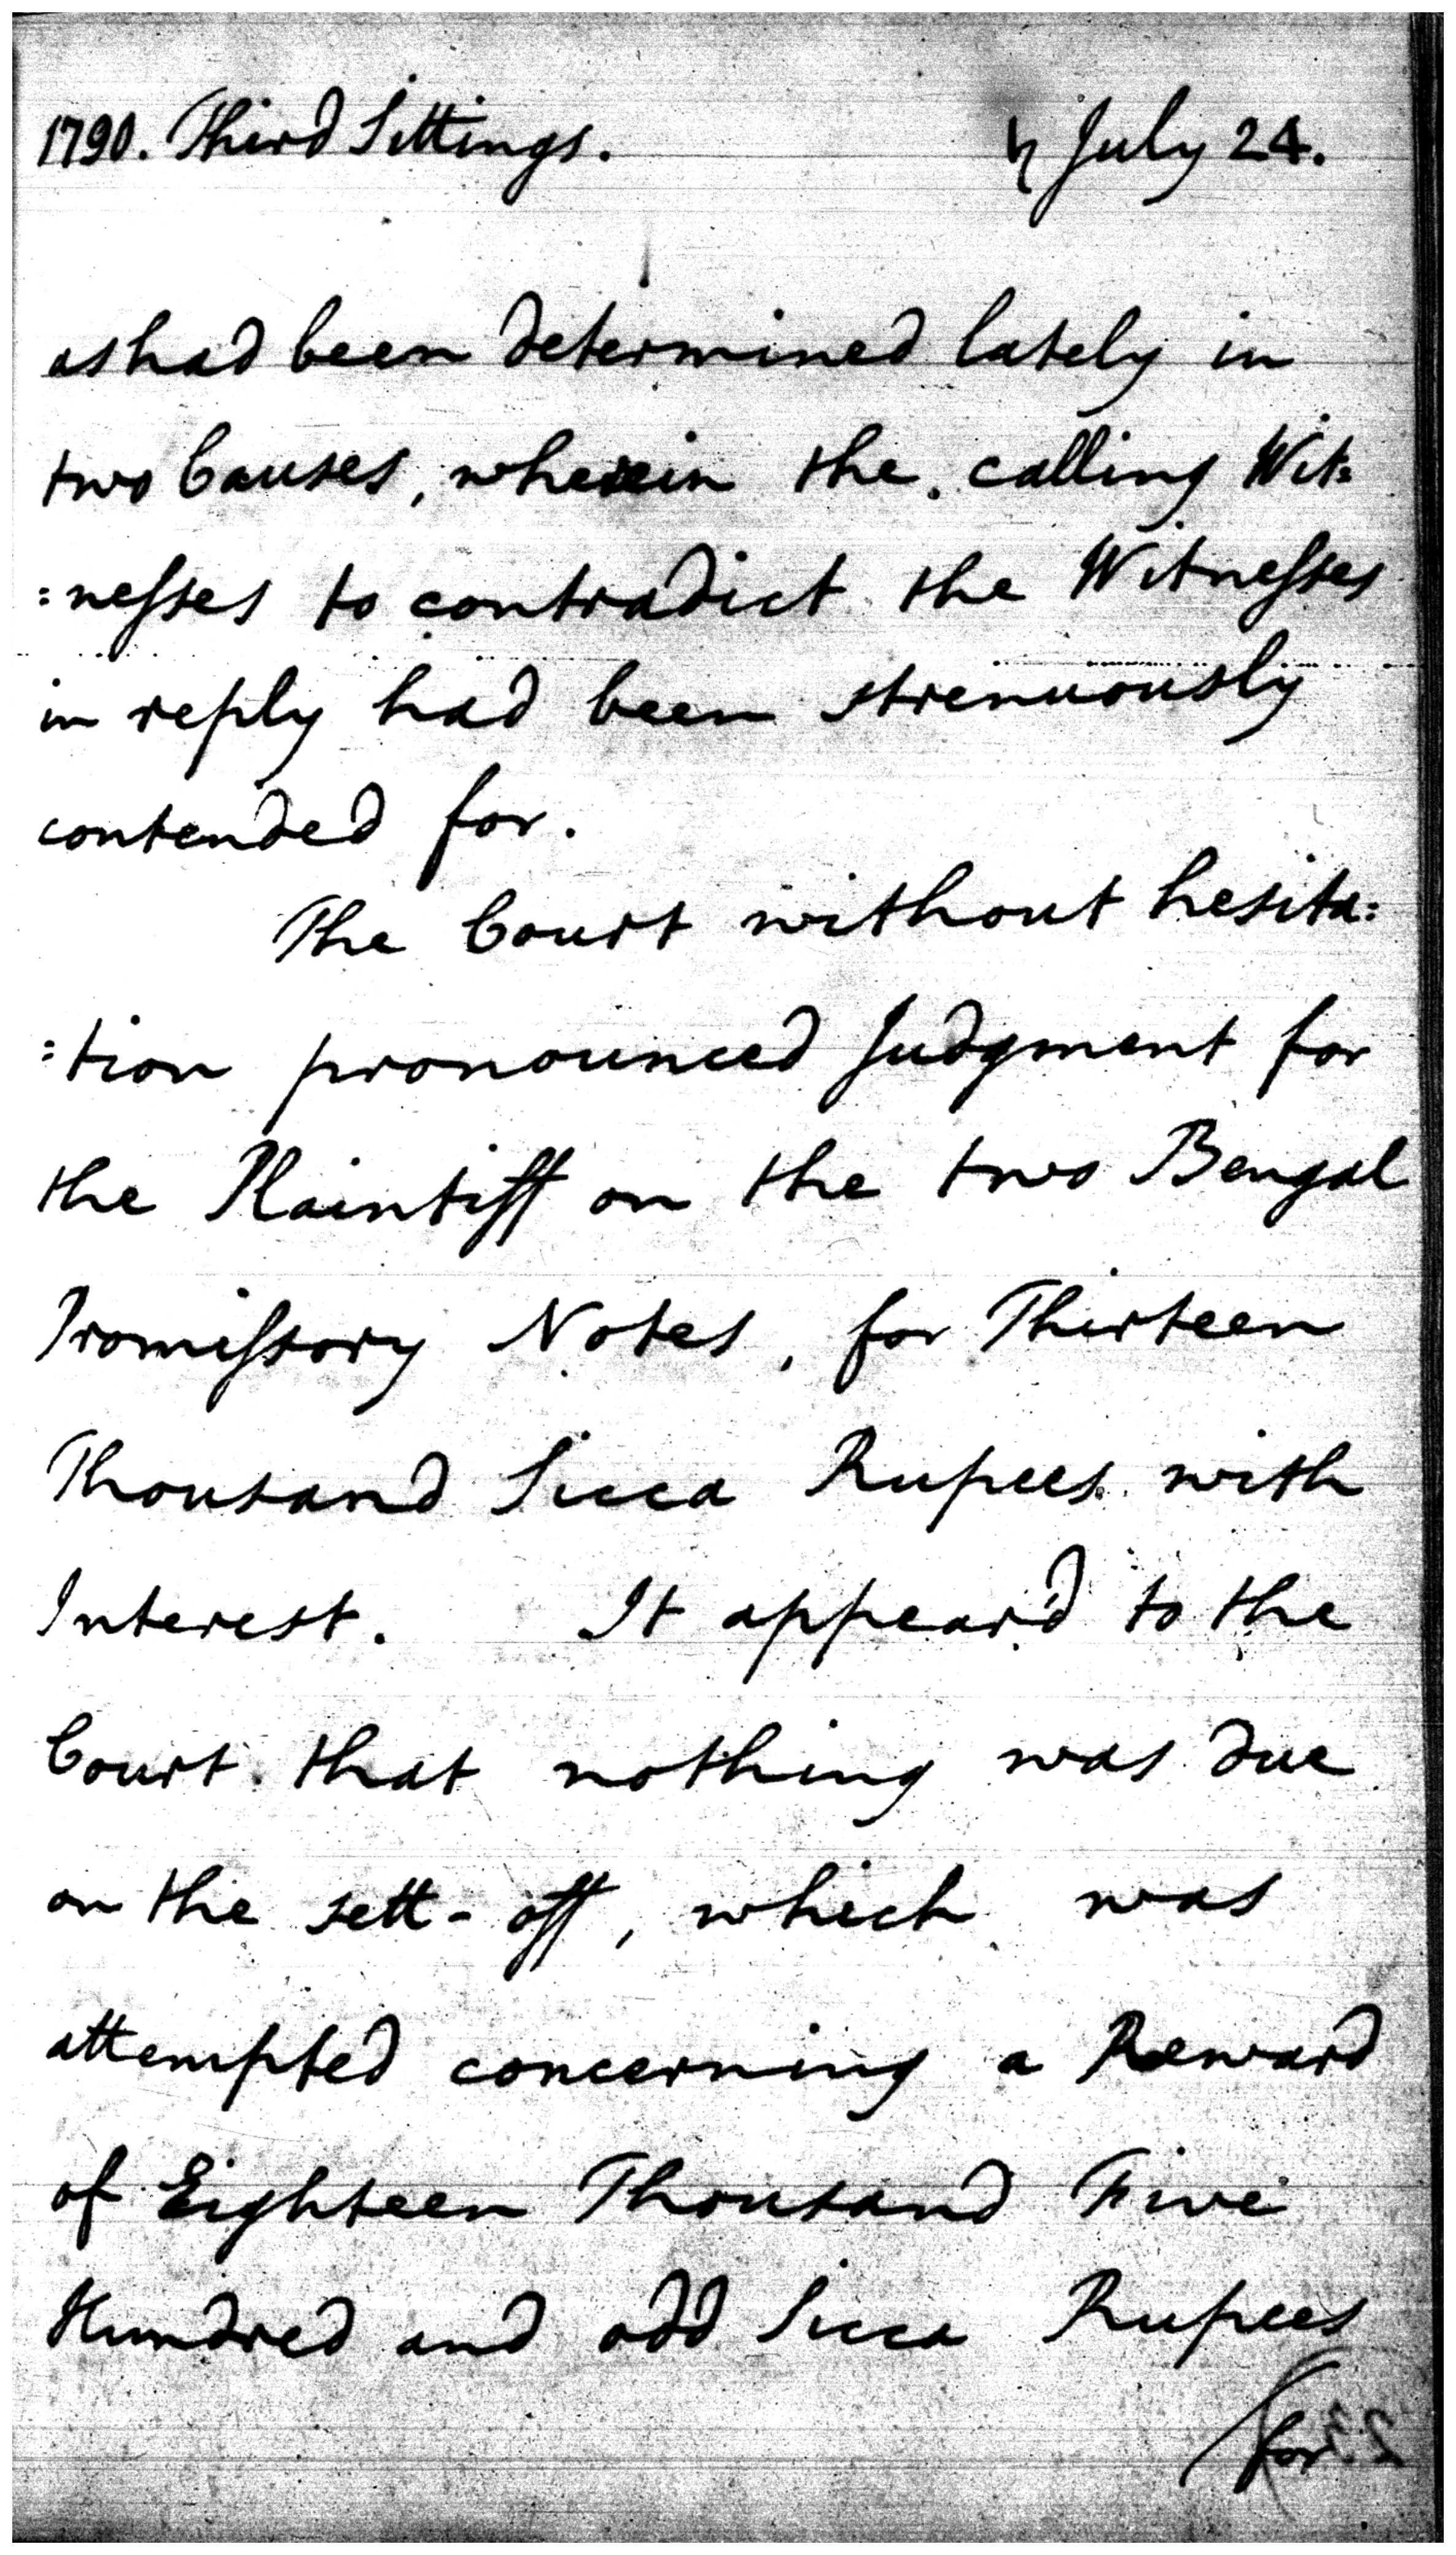 1790. Third Sittings. ♄ July 24.
as had been determined lately in
two Causes, wherein the calling Wit=
=nesses to contradict the Witnesses
in reply had been strenuously
contended for.
The Court without hesita=
=tion pronounced Judgment for
the Plaintiff on the two Bengal
Promissory Notes, for Thirteen
Thousand Sicca Rupees with
Interest. It appear'd to the
Court that nothing was due
on the sett-off, which was
attempted concerning a Reward
of Eighteen Thousand Five
Hundred and odd Sicca Rupees
for